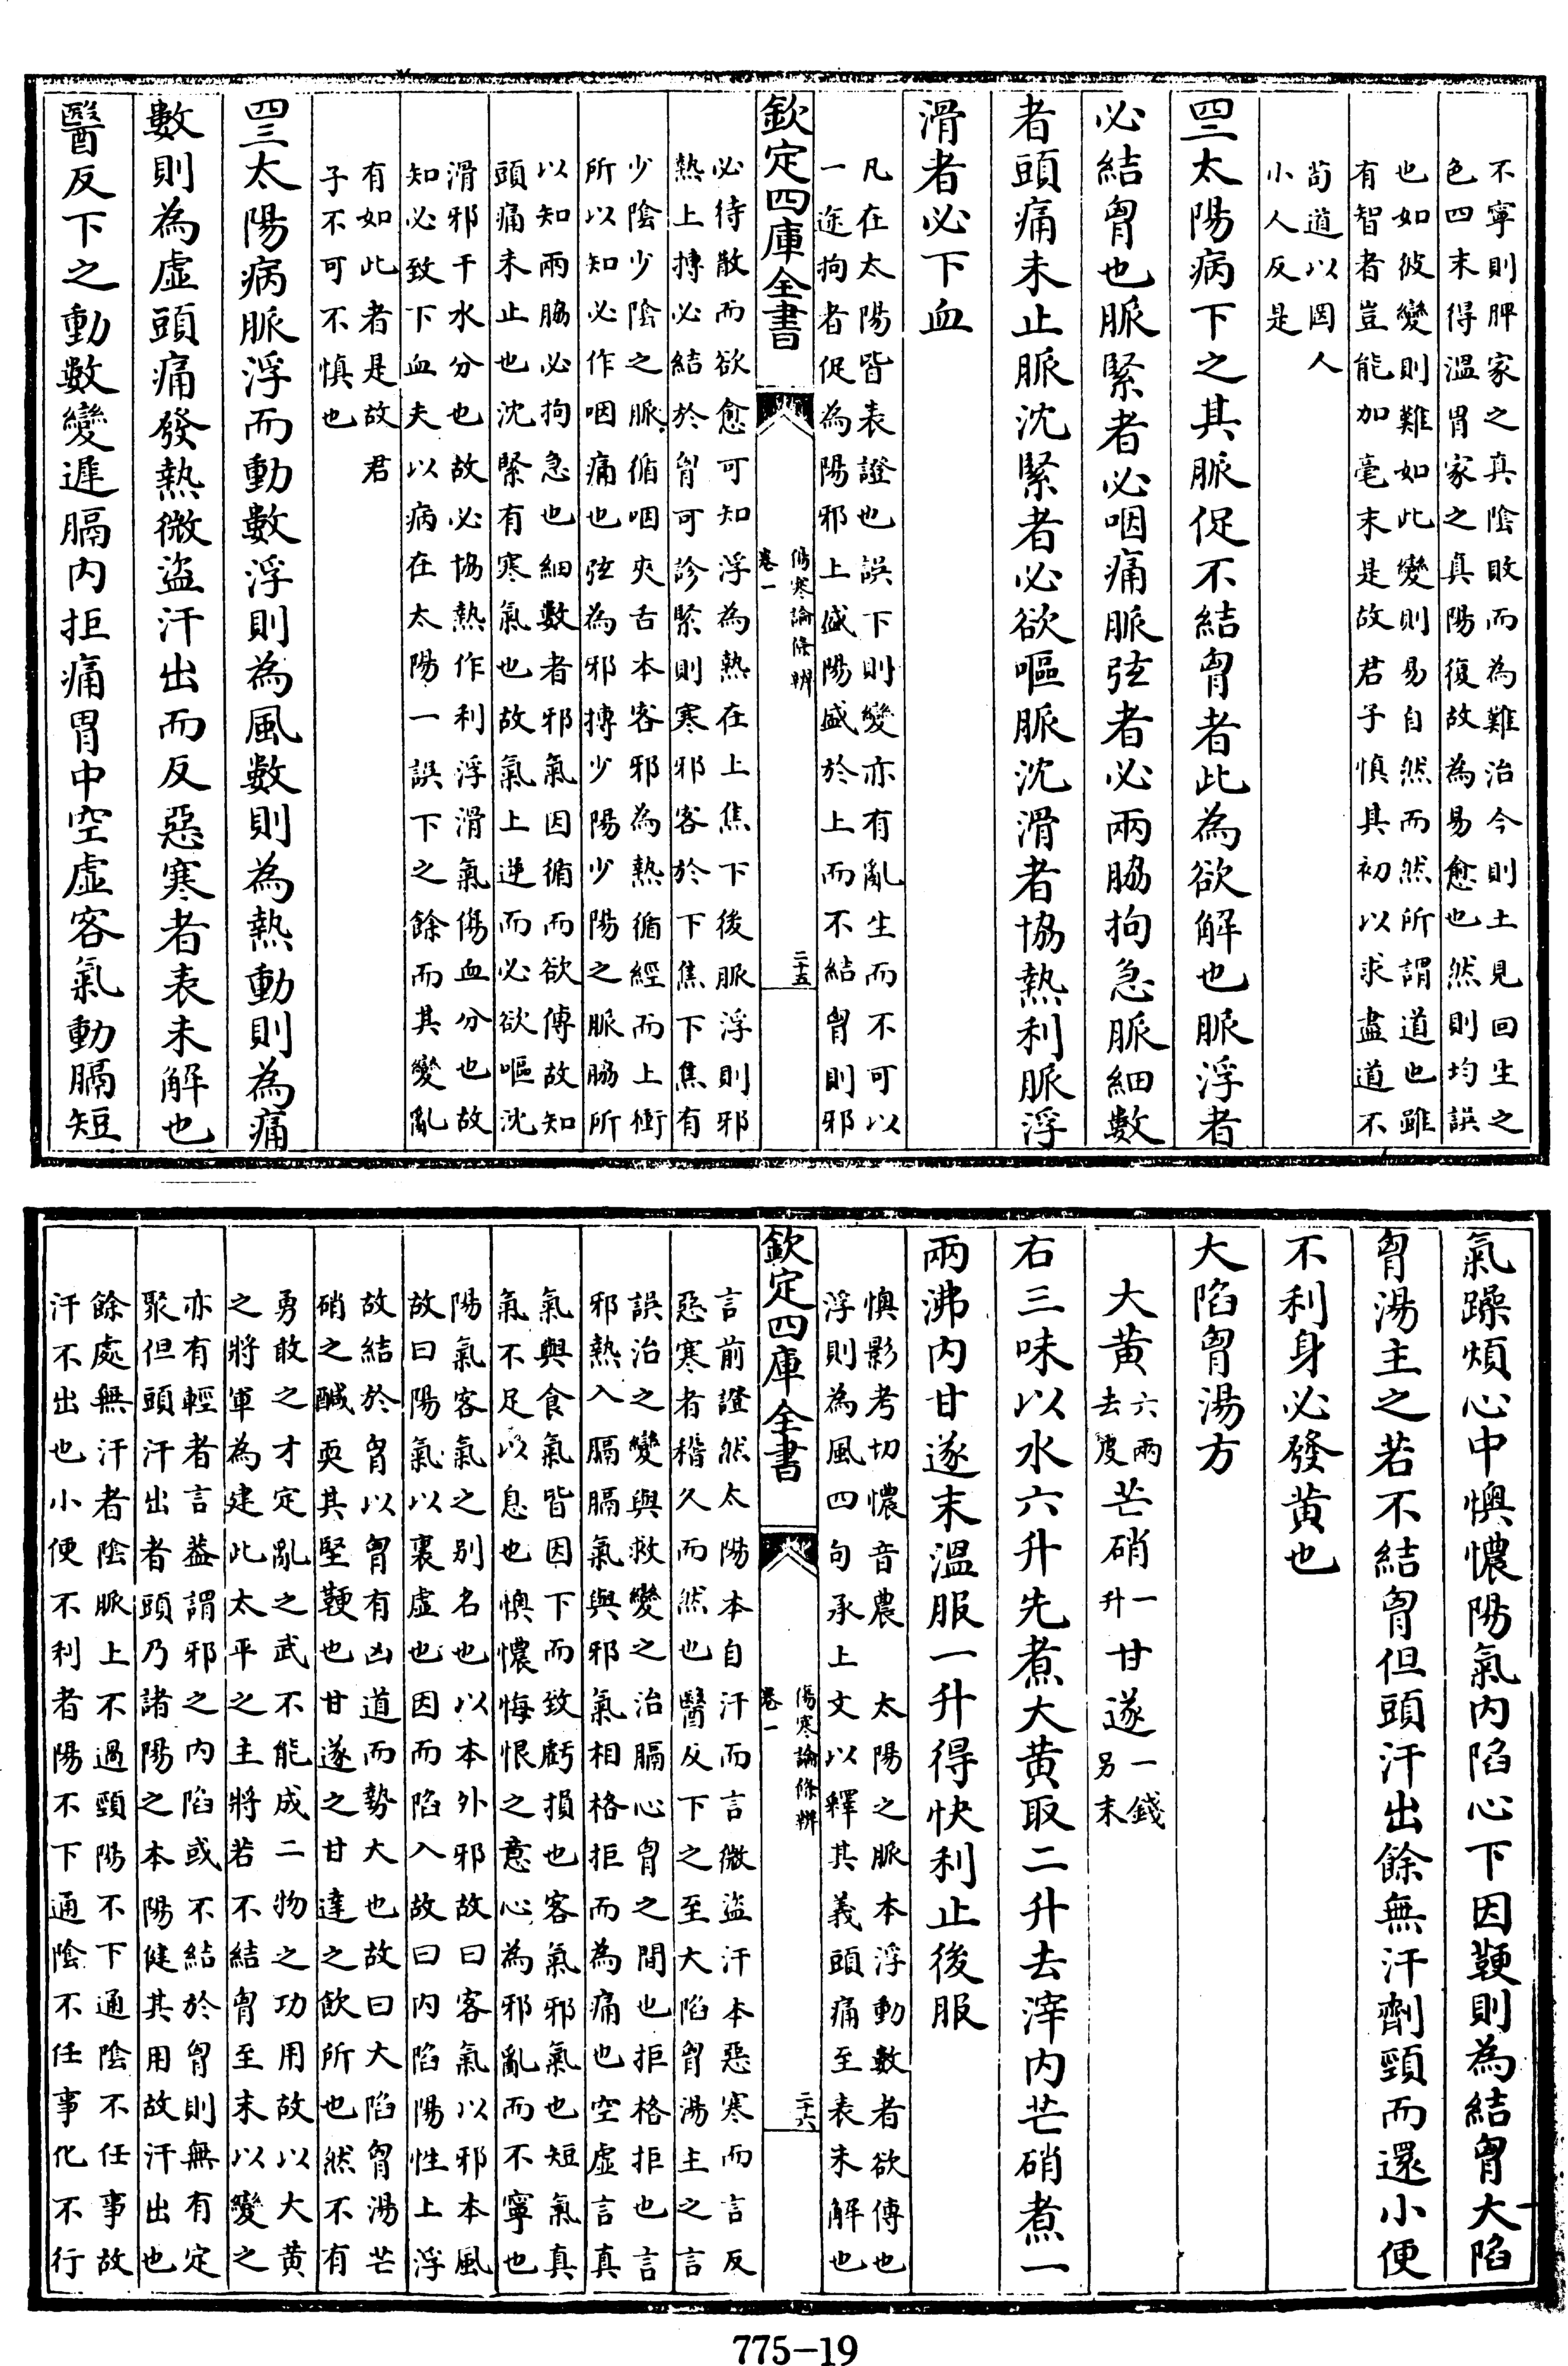 不寧則脾家之真陰敗而為難治今則土見回生之
色四末得溫胃家之真陽復故為易愈也然則均誤
也如彼變則難如此變則易自然而然所謂道也雖
有智者豈能加毫末是故君子慎其初以求盡道不
苟道以罔人
小人反是
四二太陽病下之其脈促不結胷者此為欲解也脈浮者
必結胷也脈緊者必咽痛脈弦者必兩脇拘急脈細數
者頭痛未止脈沈緊者必欲嘔脈沈滑者協熱利脈浮
滑者必下血
凡在太陽皆表證也誤下則變亦有亂生而不可以
一途拘者促為陽邪上盛陽盛於上而不結胷則邪
欽定四庫全書
傷寒論條辨
卷一
二十五
必待散而欲愈可知浮為熱在上焦下後脈浮則邪
熱上搏必結於胷可診緊則寒邪客於下焦下焦有
少陰少陰之脈循咽夾舌本客邪為熱循經而上衝
所以知必作咽痛也弦為邪搏少陽少陽之脈脇所
以知兩脇必拘急也細數者邪氣因循而欲傳故知
頭痛未止也沈緊有寒氣也故氣上逆而必欲嘔沈
滑邪干水分也故必協熱作利浮滑氣傷血分也故
知必致下血夫以病在太陽一誤下之餘而其變亂
有如此者是故君
子不可不慎也
四三太陽病脈浮而動數浮則為風數則為熱動則為痛
數則為虛頭痛發熱微盜汗出而反惡寒者表未解也
醫反下之動數變遲膈內拒痛胃中空虛客氣動膈短
氣躁煩心中懊憹陽氣內陷心下因鞕則為結胷大陷
胷湯主之若不結胷但頭汗出餘無汗劑頸而還小便
不利身必發黃也
大陷胷湯方
大黃六兩去皮芒硝一升甘遂一錢另末
右三味以水六升先煮大黃取二升去滓內芒硝煮一
兩沸內甘遂末溫服一升得快利止後服
懊影考切憹音農　太陽之脈本浮動數者欲傳也
浮則為風四句承上文以釋其義頭痛至表未解也
欽定四庫全書
傷寒論條辨
卷一
二十六
言前證然太陽本自汗而言微盜汗本惡寒而言反
惡寒者稽久而然也醫反下之至大陷胷湯主之言
誤治之變與救變之治膈心胷之間也拒格拒也言
邪熱入膈膈氣與邪氣相格拒而為痛也空虛言真
氣與食氣皆因下而致虧損也客氣邪氣也短氣真
氣不足以息也懊憹悔恨之意心為邪亂而不寧也
陽氣客氣之別名也以本外邪故曰客氣以邪本風
故曰陽氣以裏虛也因而陷入故曰內陷陽性上浮
故結於胷以胷有凶道而勢大也故曰大陷胷湯芒
硝之醎耎其堅鞕也甘遂之甘達之飲所也然不有
勇敢之才定亂之武不能成二物之功用故以大黃
之將軍為建此太平之主將若不結胷至末以變之
亦有輕者言葢謂邪之內陷或不結於胷則無有定
聚但頭汗出者頭乃諸陽之本陽健其用故汗出也
餘處無汗者陰脈上不過頸陽不下通陰不任事故
汗不出也小便不利者陽不下通陰不任事化不行
775-19